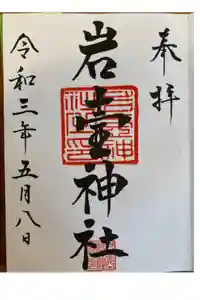 奉拝
岩壺神社
令和三年五月八日